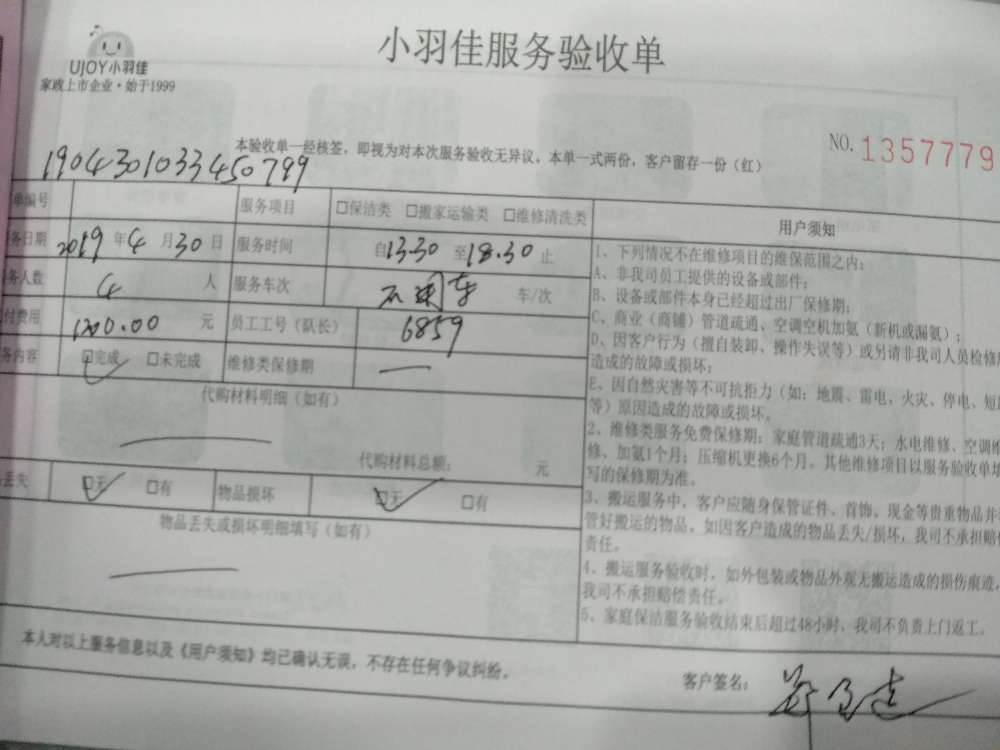 小羽佳服务验收单
UJOY小羽佳
家政上市企业·始于1999
本验收单一经核签，即视为对本次服务验收无异议，本单一式两份，客户留存一份（红）
NO. 1357779
190430103345079
单编号 服务项目 □保洁类 □搬家运输类 □维修清洗类
务日期 2019 年 4 月 30 日 服务时间 自 13.30 至 18.30 止
务人数 4 人 服务车次 不用车 车/次
付费用 1200.00 元 员工工号（队长） 6859
务内容 ☑完成 □未完成 维修类保修期 —
代购材料明细（如有）
代购材料总额： 元
丢失 ☑无 □有 物品损坏 ☑无 □有
物品丢失或损坏明细填写（如有）
用户须知
1、下列情况不在维修项目的维保范围之内：
A、非我司员工提供的设备或部件；
B、设备或部件本身已经超过出厂保修期；
C、商业（商铺）管道疏通、空调空机加氨（新机或漏氨）；
D、因客户行为（擅自装卸、操作失误等）或另请非我司人员检修
造成的故障或损坏；
E、因自然灾害等不可抗拒力（如：地震、雷电、火灾、停电、短
等）原因造成的故障或损坏。
2、维修类服务免费保修期：家庭管道疏通3天；水电维修、空调维
修、加氨1个月；压缩机更换6个月。其他维修项目以服务验收单填
写的保修期为准。
3、搬运服务中，客户应随身保管证件、首饰、现金等贵重物品并
管好搬运的物品。如因客户造成的物品丢失/损坏，我司不承担赔
责任。
4、搬运服务验收时，如外包装或物品外观无搬运造成的损伤痕迹，
我司不承担赔偿责任。
5、家庭保洁服务验收结束后超过48小时，我司不负责上门返工。
本人对以上服务信息以及《用户须知》均已确认无误，不存在任何争议纠纷。
客户签名：